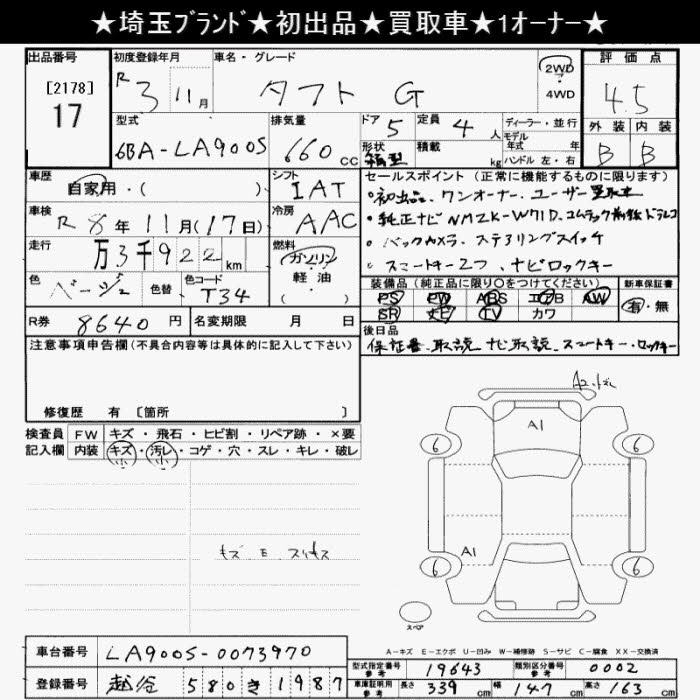 ★埼玉ﾌﾞﾗﾝﾄﾞ★初出品★買取車★1オーナー★
出品番号 初度登録年月 車名・グレード 評価点
[2178] R 3 11月 タフト G 2WD 4.5
17 4WD
型式 排気量 ドア 5 定員 4人 ディーラー・並行 外装 内装
6BA-LA900S 660cc 形状 箱型 積載 kg モデル年式 年式 ハンドル 左・右 B B
車歴 シフト セールスポイント (正常に機能するものに限ります)
自家用・( ) IAT ・初出品、ワンオーナー、ユーザー買取車
車検 R 8年 11月(17日) 冷房 AAC ・純正ナビ NMZK-W71D、コムテック前後ドラレコ
走行 万3千922km 燃料 ガソリン ・バックカメラ、ステアリングスイッチ
軽油 ・スマートキー2つ、ナビロックキー
色 ベージュ 色替 色コード T34 ( ・ ) 装備品 (純正品に限り○をつけてください) 新車保証書
PS PW ABS エアB AW 有・無
R券 8640円 名変期限 月 日 SR TV カワ
後日品
注意事項申告欄 (不具合内容等は具体的に記入して下さい) 保証書、取説、ナビ取説、スマートキー、ロックキー
修復歴 有 [箇所 ]
検査員 FW キズ・飛石・ヒビ割・リペア跡・×要
記入欄 内装 キズ・汚レ・コゲ・穴・スレ・キレ・破レ
小 小
A2
A1
6 6
A1
6 6
スペア
A-キズ E-エクボ U-凹み W-補修跡 S-サビ C-腐食 XX-交換済
車台番号 LA900S-0073970
型式指定番号 参考 19643 類別区分番号 参考 0002
登録番号 越谷 580 き 1987
車庫証明用 参考 長さ 339cm 幅 147cm 高さ 163cm